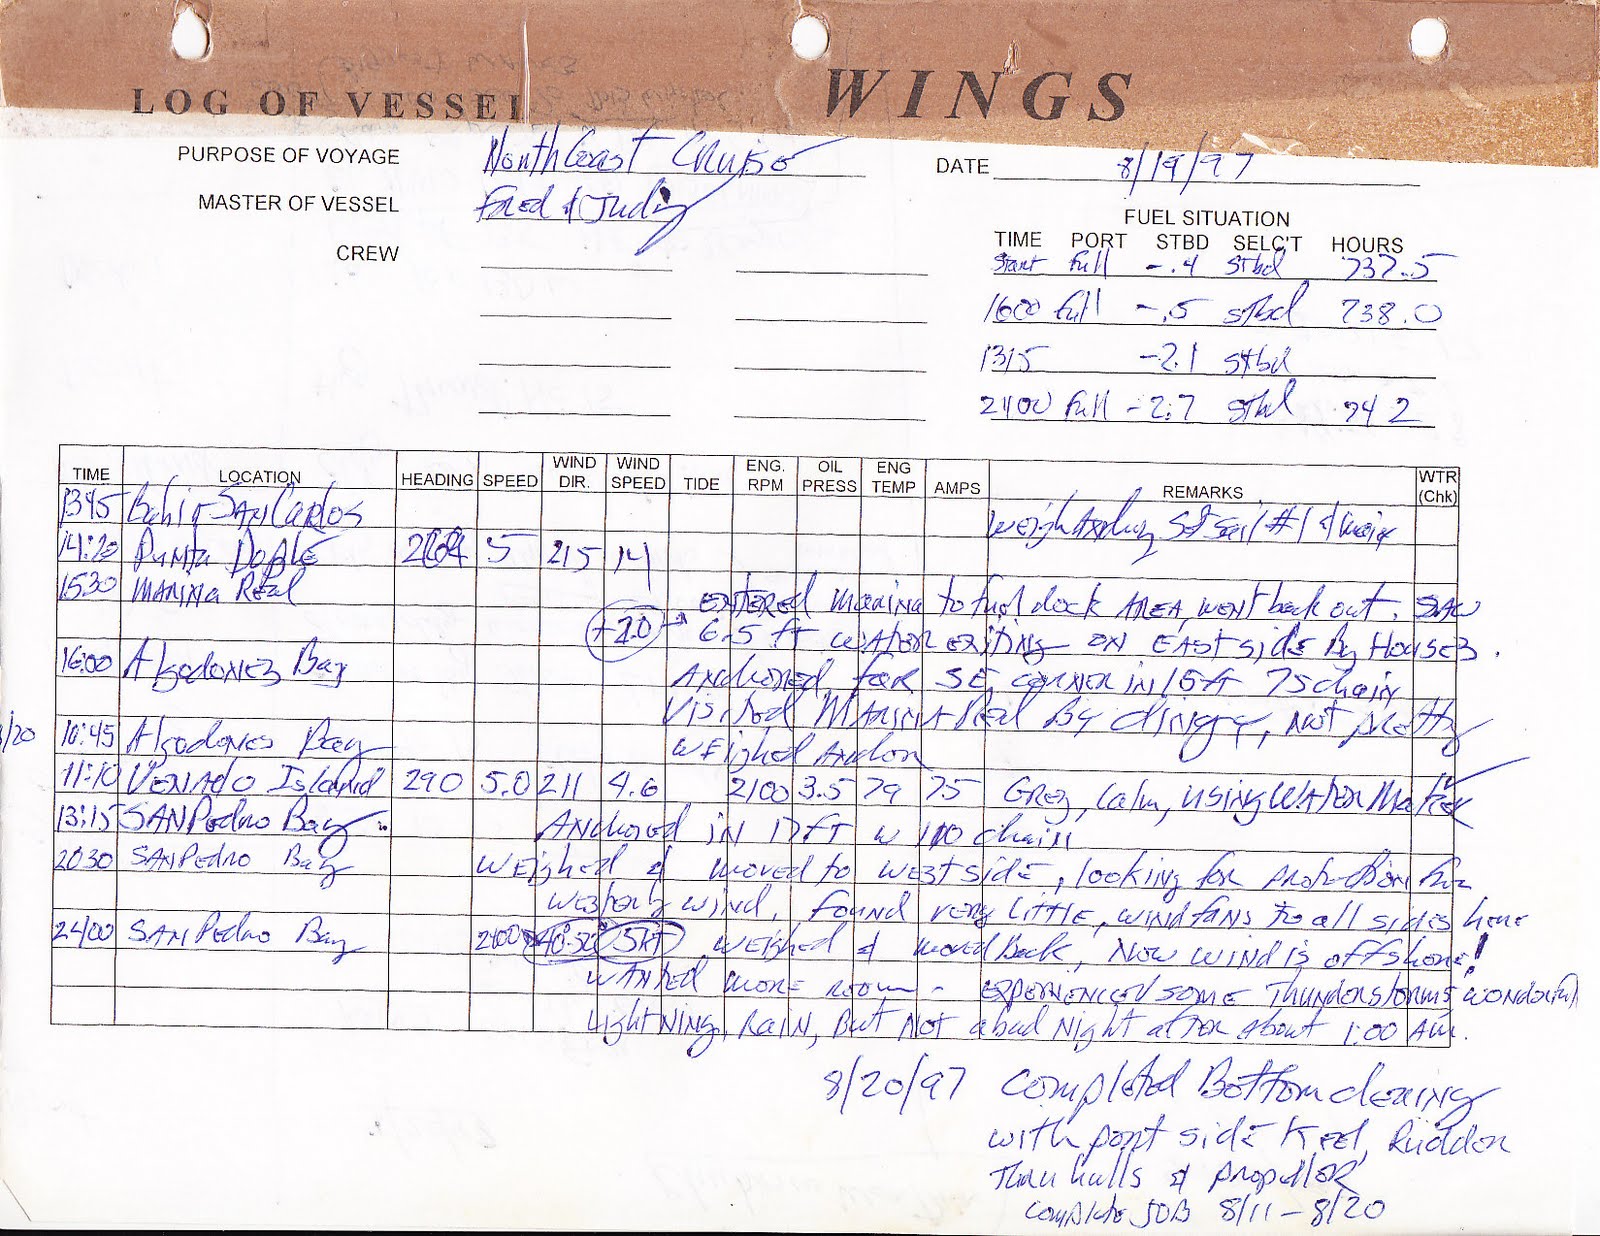 LOG OF VESSEL WINGS
PURPOSE OF VOYAGE North Coast Cruise DATE 8/19/97
MASTER OF VESSEL Fred & Judy
FUEL SITUATION
CREW
TIME PORT STBD SELC'T HOURS
Start Full -.4 Stbd 737.5
1600 Full -.5 Stbd 738.0
1315 -2.1 Stbd
2400 Full -2.7 Stbd 742
TIME LOCATION HEADING SPEED WIND DIR. WIND SPEED TIDE ENG. RPM OIL PRESS ENG TEMP AMPS REMARKS WTR (Chk)
1345 Bahia San Carlos Weigh Anchor, Set Sail #1 & main
14:20 Punta Doble 5 215 14
1530 Marina Real ENTERED Marina to fuel dock AREA, went back out. SAW
+2.0 6.5 ft WATER EXITING ON EAST SIDE By HOUSES.
16:00 Algodones Bay Anchored far SE corner in 15 ft 75 chain
Visited Marina Real By dingy, not pretty
8/20 10:45 Algodones Bay WEighed Anchor
11:10 VENADO Island 290 5.0 211 4.6 2100 3.5 79 75 Grey, calm, using WATER MAKER
13:15 SAN Pedro Bay ANchored in 17 FT w 100 chain
2030 SAN Pedro Bay WEighed & moved to west side, looking for protection for
westerly wind, found very little, wind fans to all sides here
2400 SAN Pedro Bay 2400 40-50 5kt weighed & moved Back, Now wind is offshore!
WANTED more room - EXPERIENCED some Thunderstorms, wonderful
Lightning, Rain, But Not a bad Night after about 1:00 Am.
8/20/97 Completed Bottom cleaning
with port side Keel, Rudder
Thru hulls & propeller
complete JOB 8/11-8/20